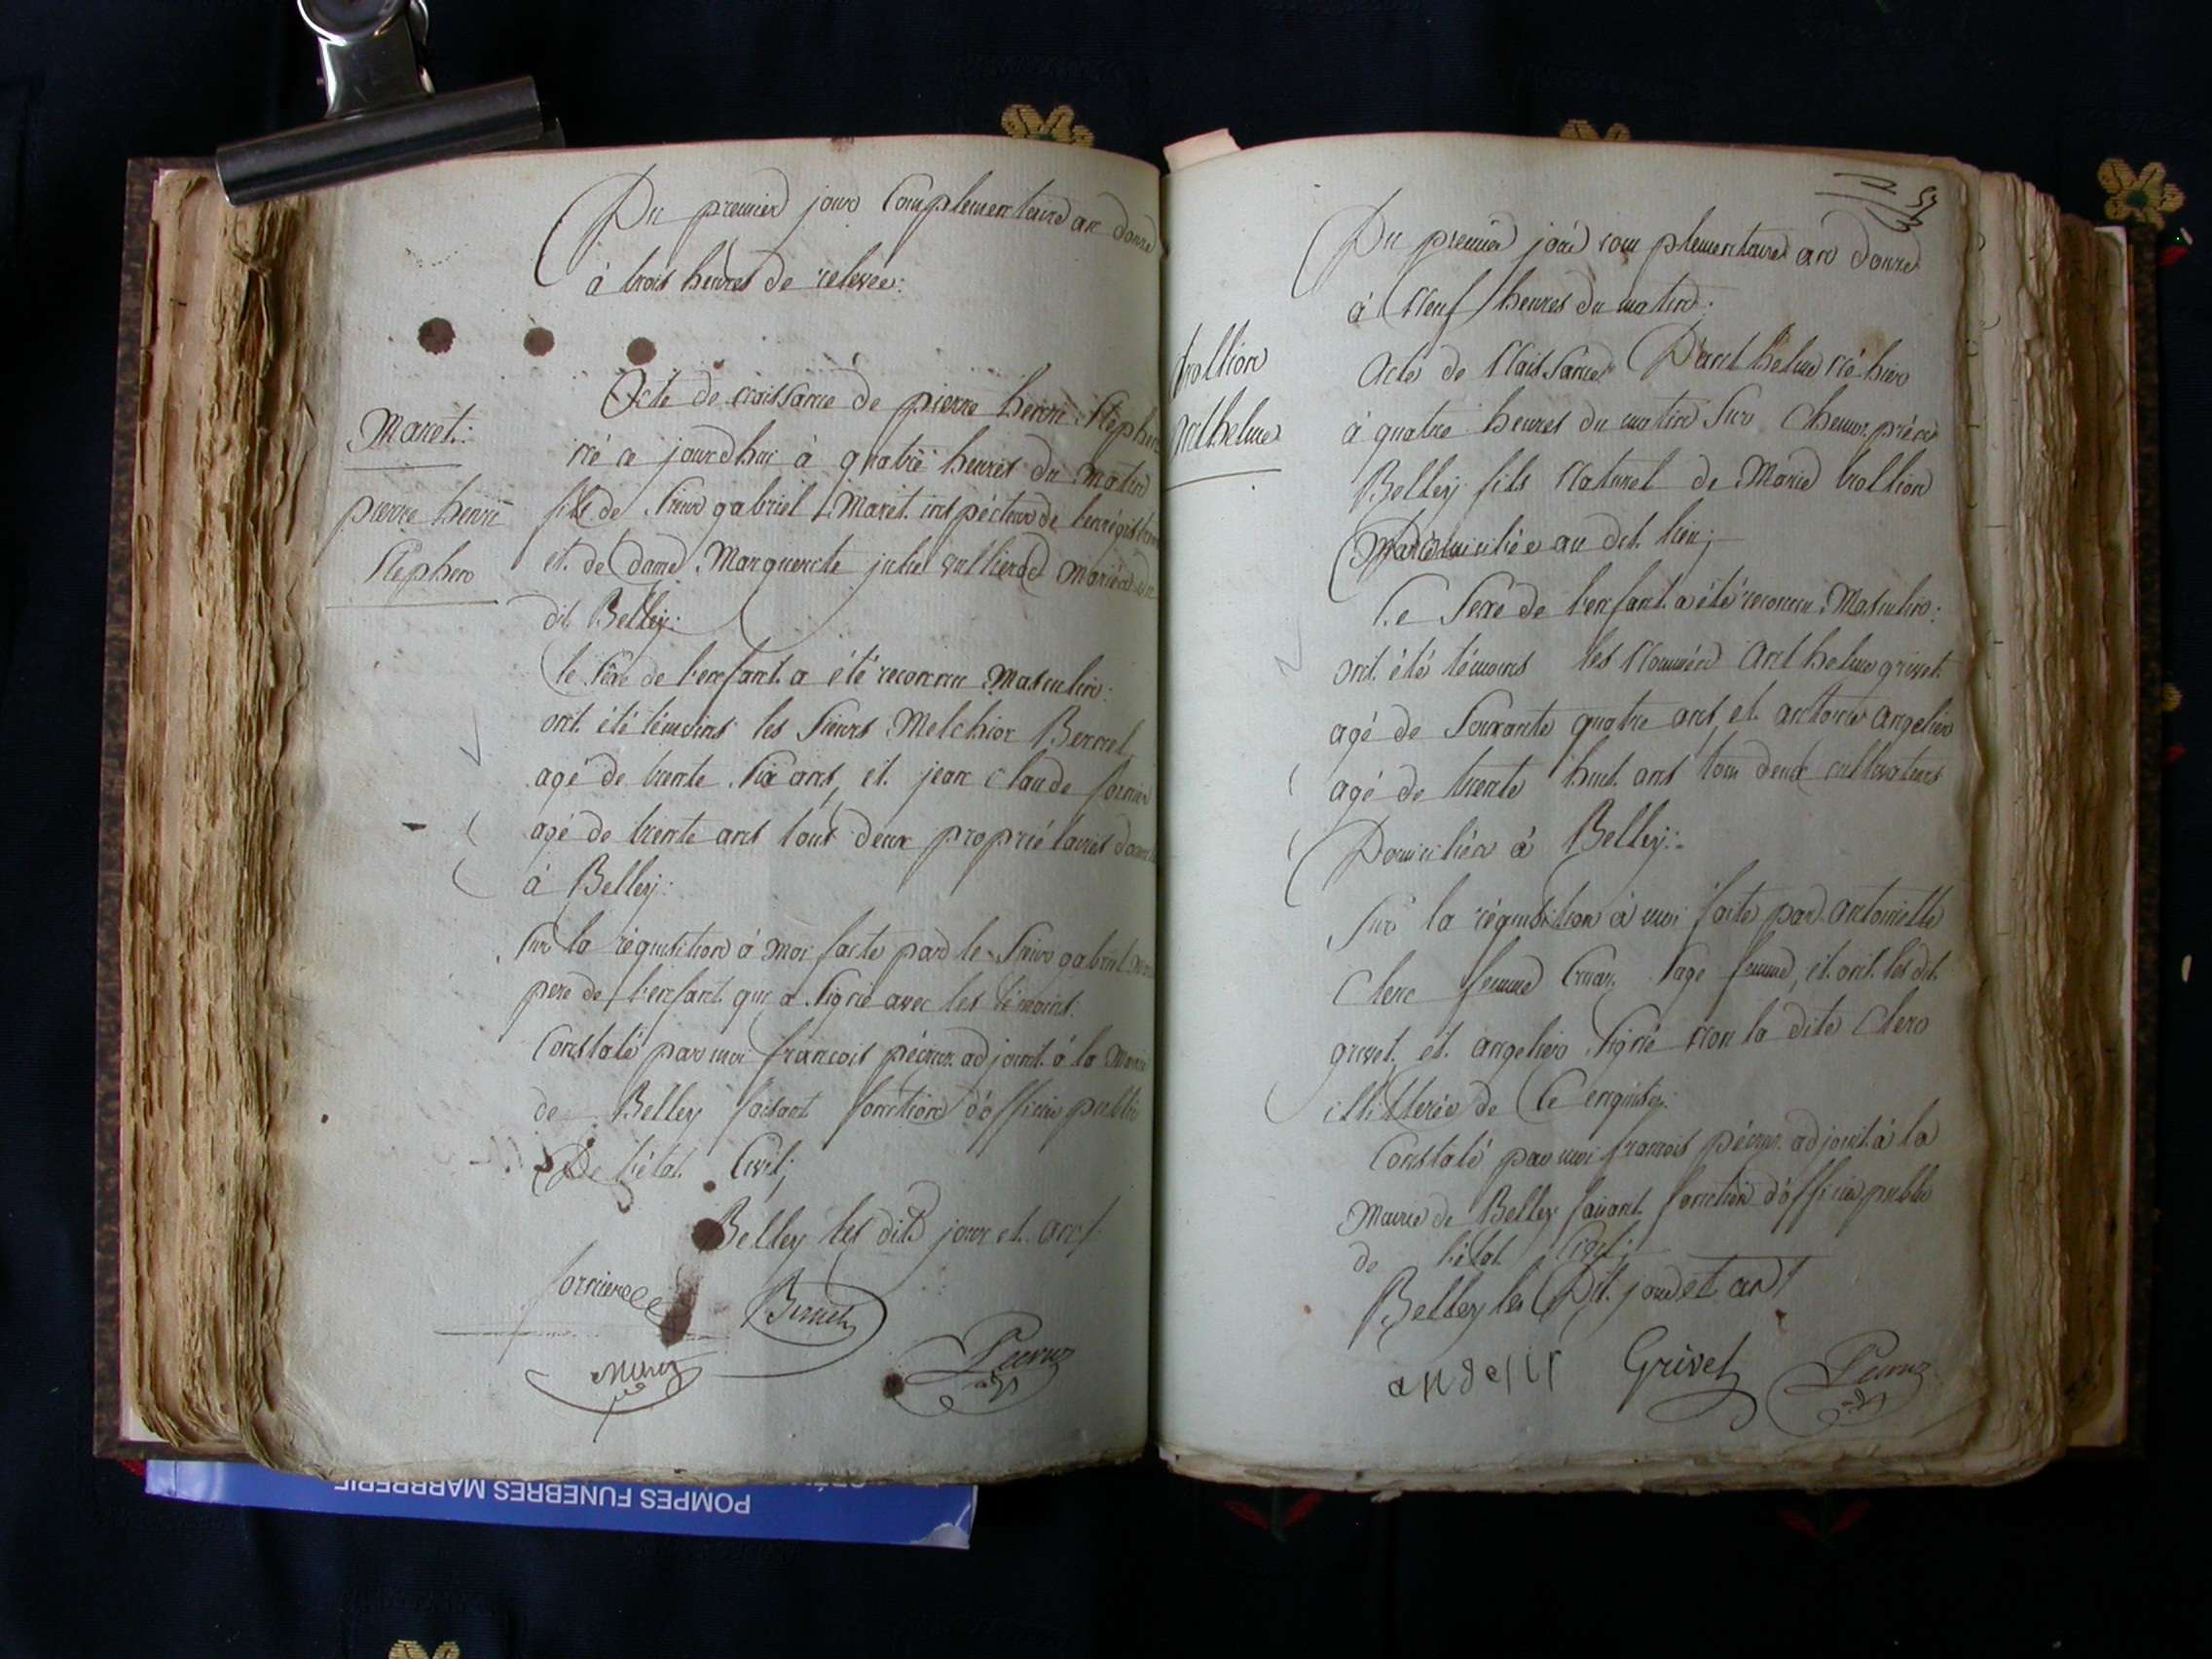 Du premier jour Complementaire an douze
à trois heures de relevée:
Maret:
pierre henri
Stephen
Acte de naissance de pierre henri Stephen
né ce jourdhui à quatre heures du matin
fils de Sieur gabriel Maret inspécteur de
et de dame Marguerite julie mariés
dit Belley:
le sexe de l'enfant a été reconnu Masculin:
ont été témoins les Sieurs Melchior
agé de trente Six ans, et jean claude fornier
agé de trente ans tous deux propriétaires
à Belley:
Sur la réquisition à moi faite par le Sieur gabriel
pere de l'enfant qui a signé avec les témoins:
Constaté par moi françois adjoint à la
de Belley faisant fonction d'officier public
De l'état Civil;
Belley les dits jour et an
Du premier jour complementaire an douze
à Neuf heures du matin:
Anthelme
Acte de Naissance D'anthelme né hier
à quatre heures du matin Sur
Belley fils Naturel de Marie trollion
Domiciliée au dit lieu;
Le sexe de l'enfant a été reconnu Masculin:
ont été témoins les Nommés Anthelme grivet
agé de Soixante quatre ans, et antoine angelier
agé de trente huit ans tous deux cultivateurs
Domiciliés à Belley:
Sur la réquisition à moi faite par antoinette
Clerc femme sage femme, et ont les dit
grivet et angelier signé non la dite Clerc
illitterée de ce enquise:
Constaté par moi francois adjoint à la
Mairie de Belley faisant fonction d'officier public
de l'état Civil;
Belley les Dit jour et an
Grivet
POMPES FUNEBRES MARBRERIE